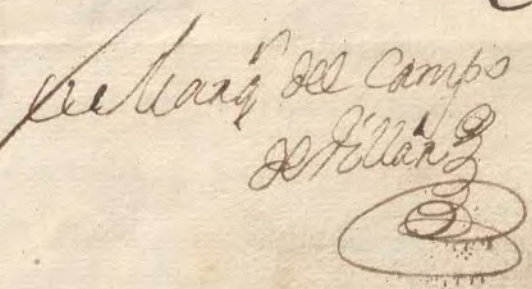 El Marq.s del Campo
de Villar